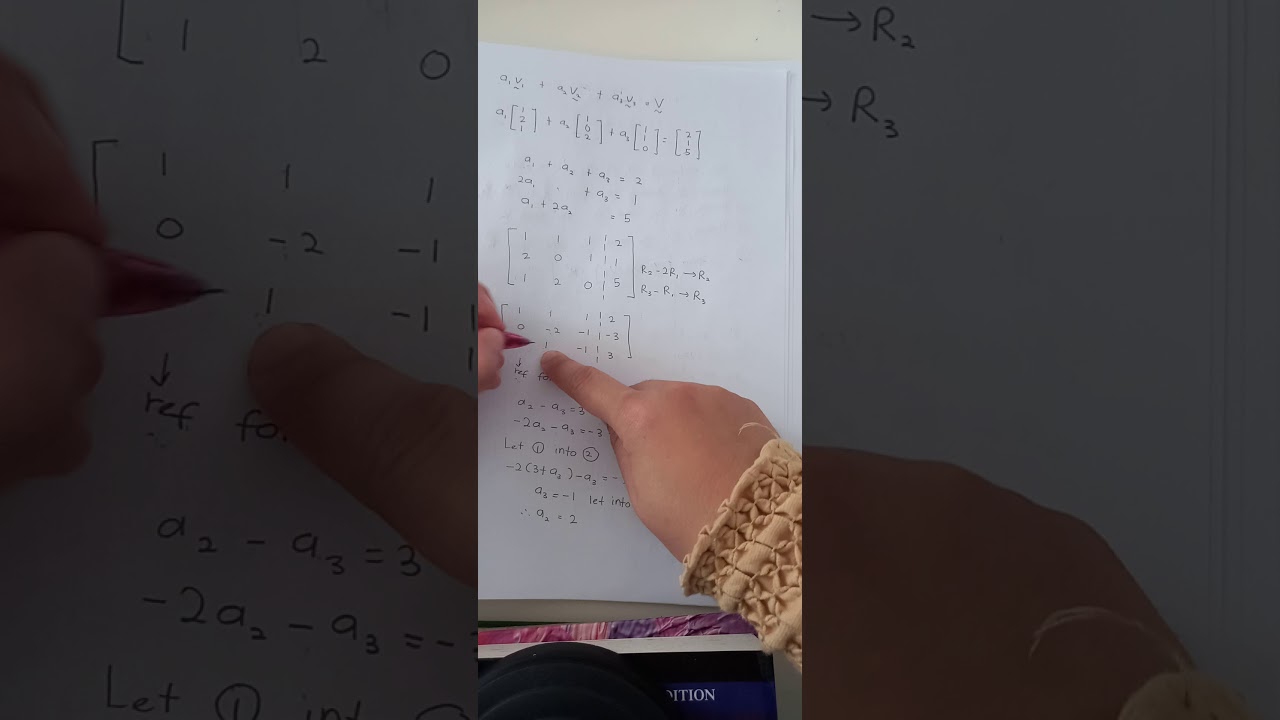 a₁v₁ + a₂v₂ + a₃v₃ = v
a₁[1 2 1] + a₂[1 0 2] + a₃[1 1 0] = [2 1 5]
a₁ + a₂ + a₃ = 2
2a₁ + a₃ = 1
a₁ + 2a₂ = 5
1 1 1 | 2
2 0 1 | 1 R₂-2R₁ → R₂
1 2 0 | 5 R₃-R₁ → R₃
1 1 1 | 2
0 -2 -1 | -3
1 -1 | 3
↓
ref
a₂ - a₃ = 3
-2a₂ - a₃ = -3
Let ① into ②
-2(3+a₃)-a₃ = -
a₃ = -1 let into
∴ a₂ = 2
DITION